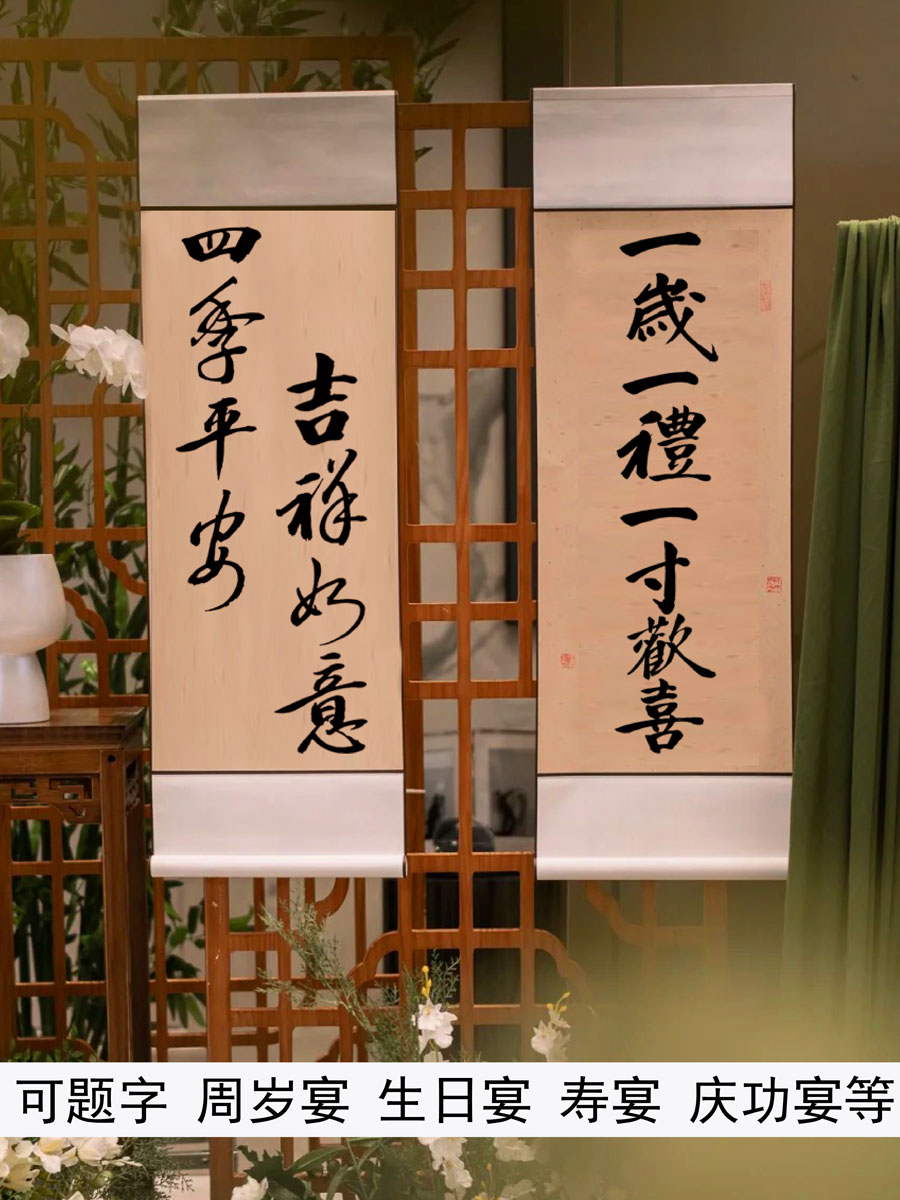 四季平安
吉祥如意
一歲一禮一寸歡喜
可题字 周岁宴 生日宴 寿宴 庆功宴等